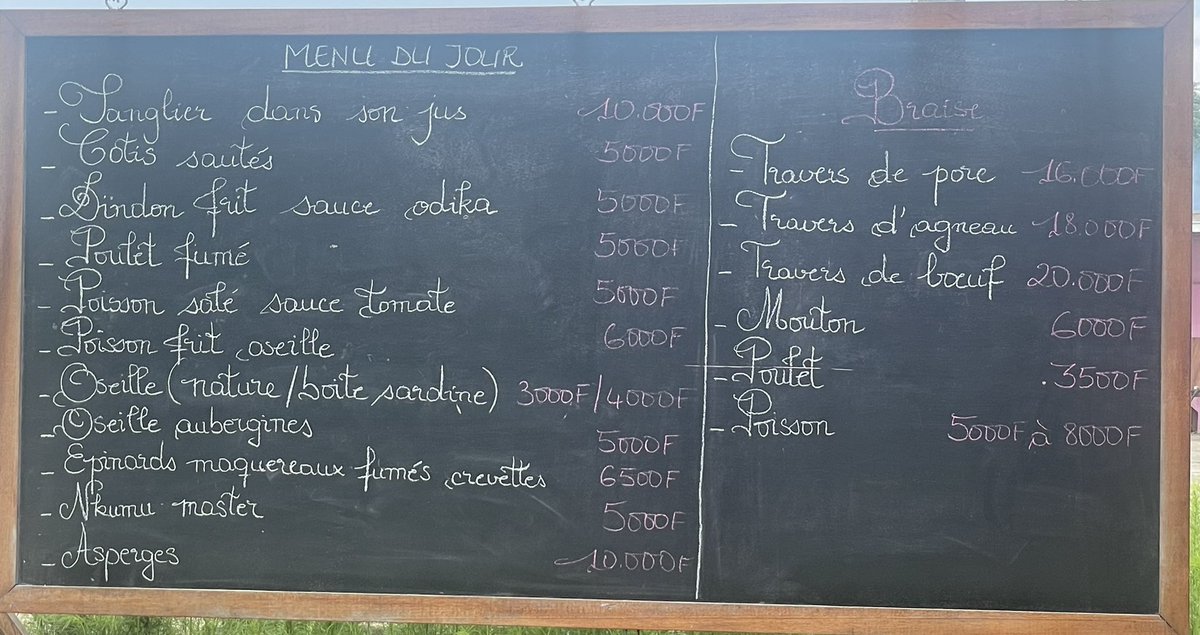 MENU DU JOUR
- Sanglier dans son jus 10.000F
- Côtis sautés 5000F
- Dindon frit sauce odika 5000F
- Poulet fumé 5000F
- Poisson salé sauce tomate 5000F
- Poisson frit oseille 6000F
- Oseille (nature/boite sardine) 3000F/4000F
- Oseille aubergines 5000F
- Epinards maquereaux fumés crevettes 6500F
- Nkumu master 5000F
- Asperges 10.000F
Braise
- Travers de porc 16.000F
- Travers d'agneau 18.000F
- Travers de bœuf 20.000F
- Mouton 6000F
- Poulet 3500F
- Poisson 5000F à 8000F